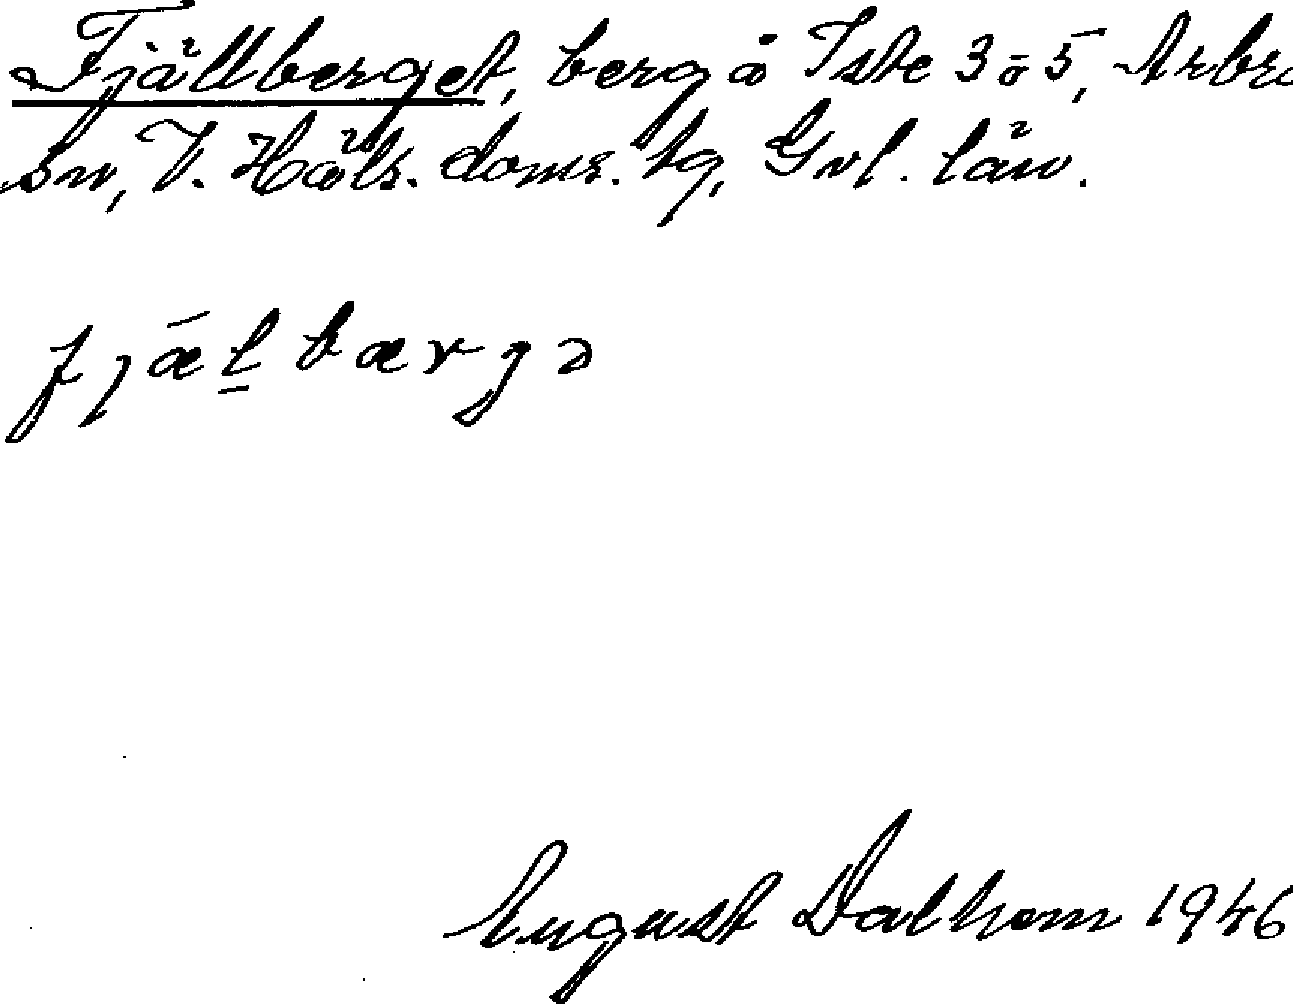 Fjällberget, berg å Iste 3 o 5, Arbrå
sn, V. Häls. doms. tg, Gvl. län.
fjæ̅l̠bærgə
August Dalhem 1946